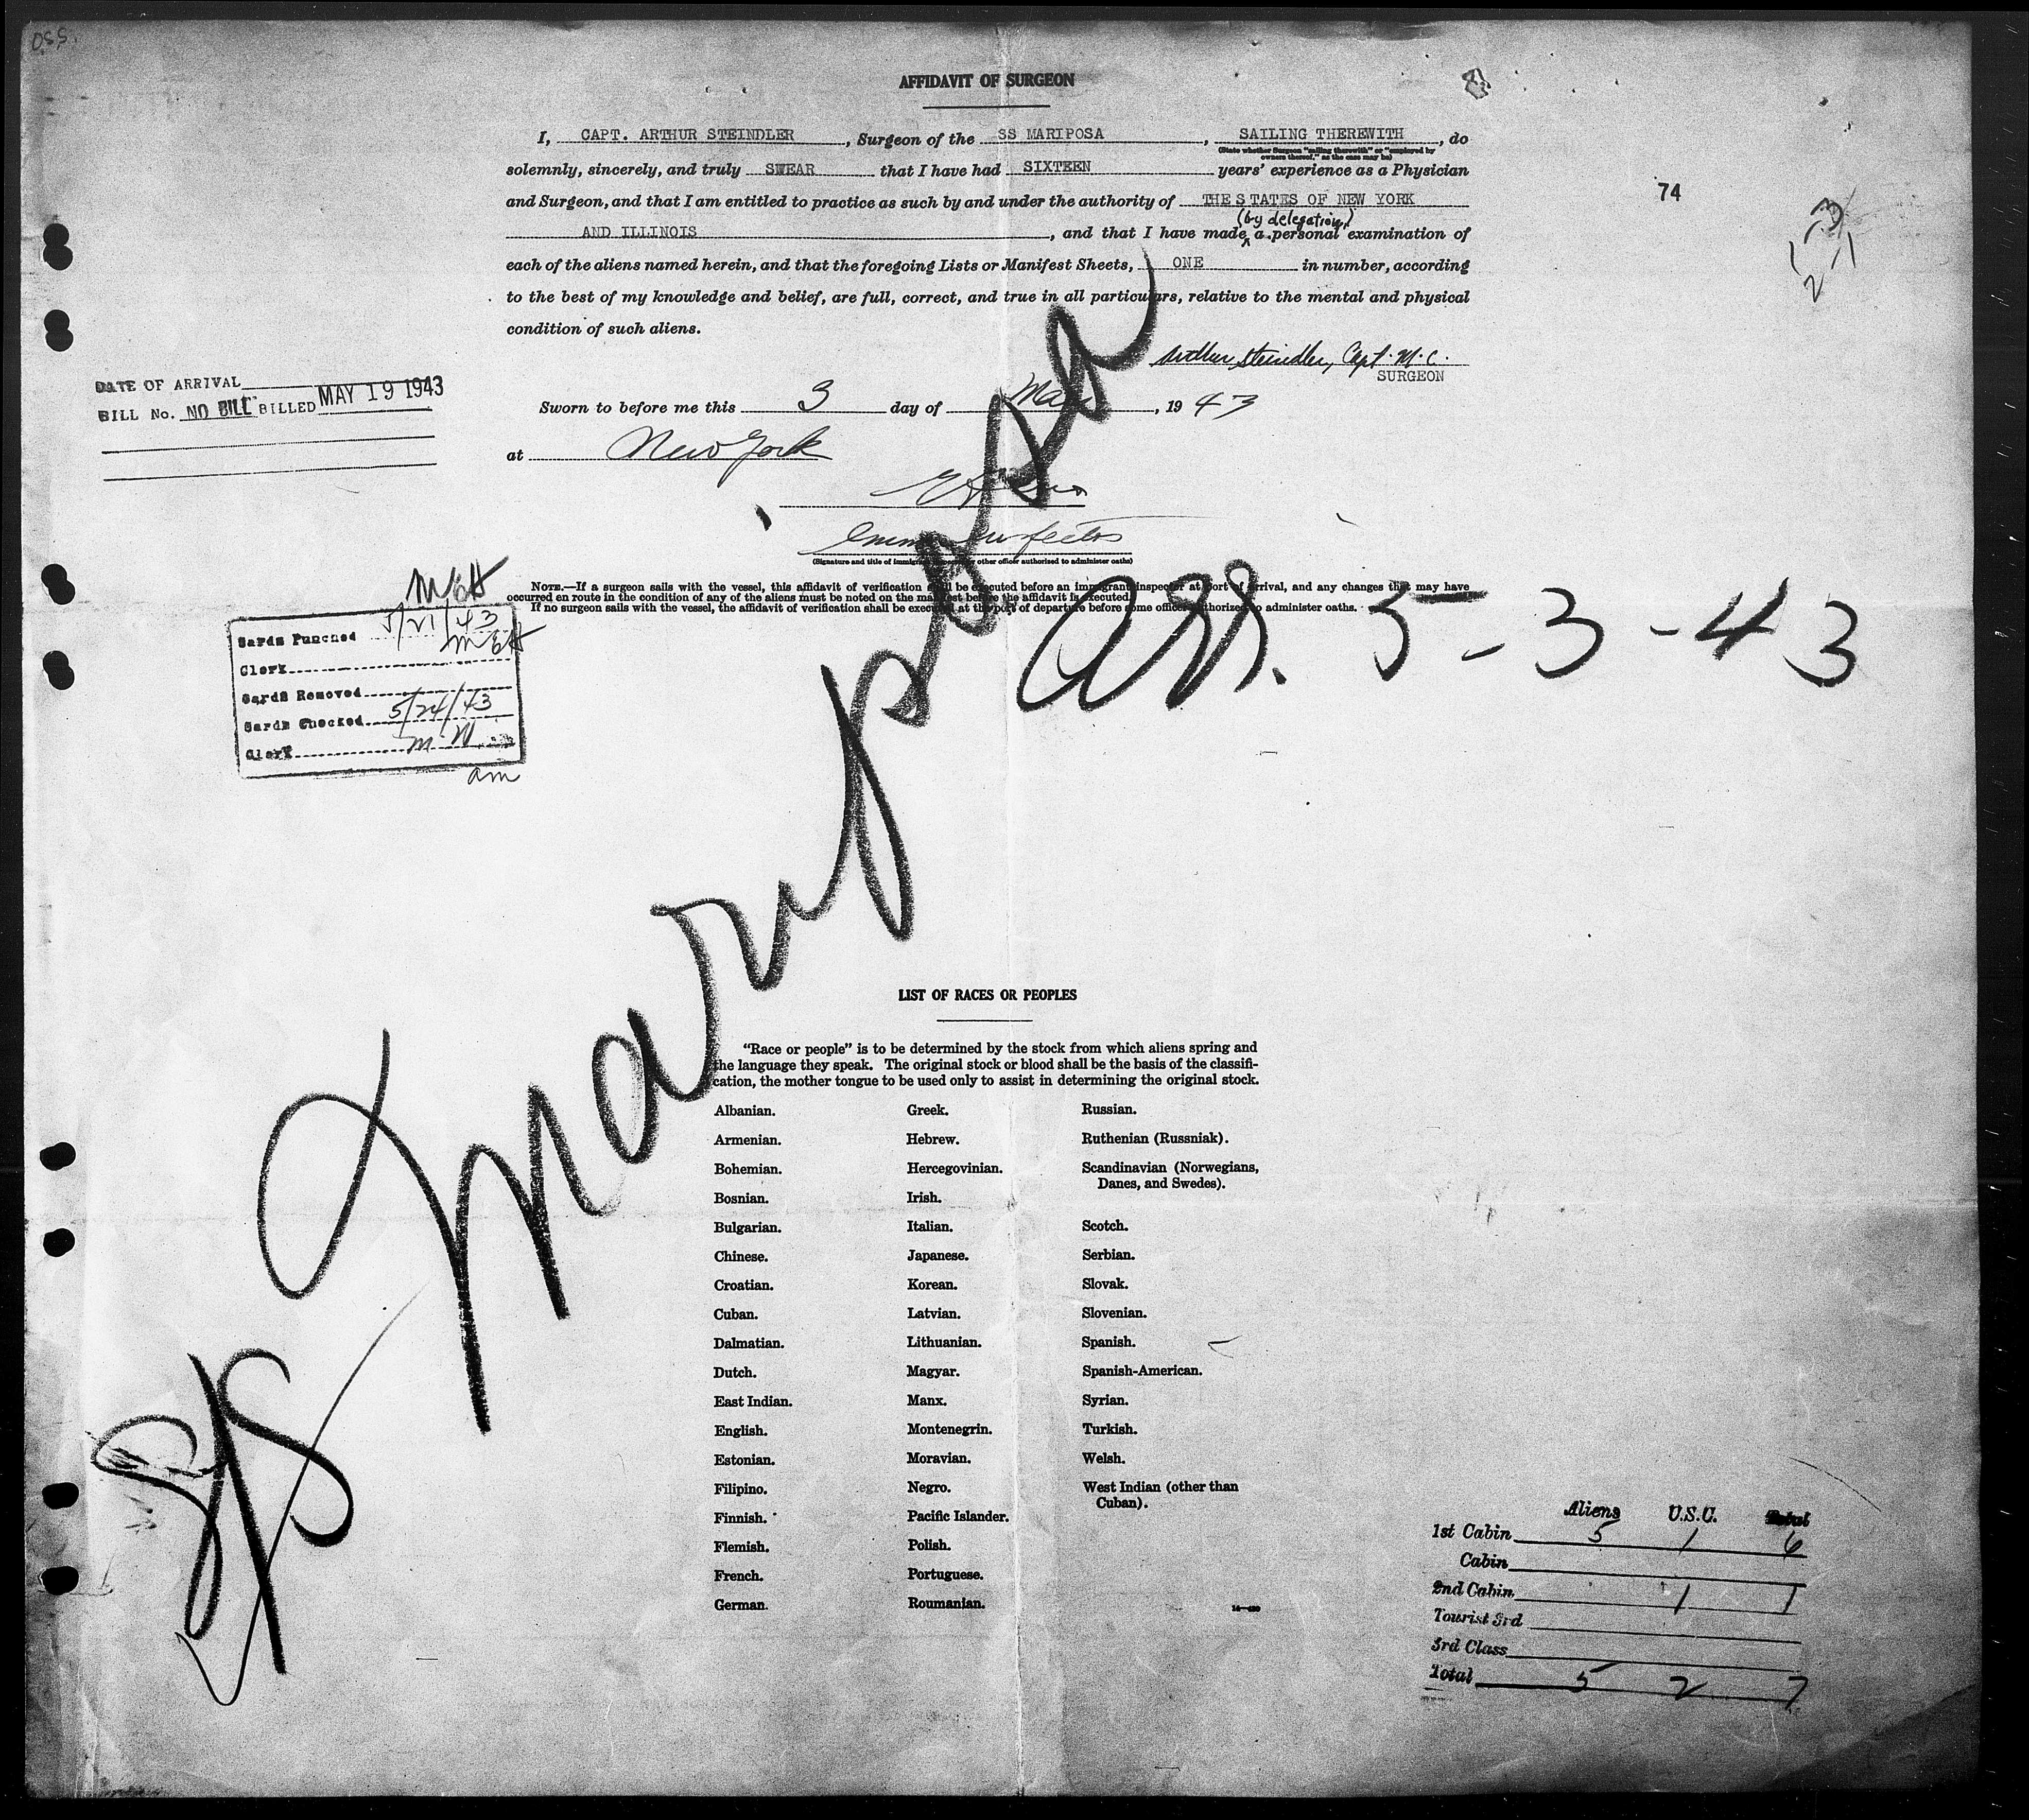 O.S.S.
AFFIDAVIT OF SURGEON
I, CAPT. ARTHUR STEINDLER, Surgeon of the SS MARIPOSA, SAILING THEREWITH, do
(State whether Surgeon "sailing therewith" or "employed by
owners thereof," as the case may be)
solemnly, sincerely, and truly SWEAR that I have had SIXTEEN years' experience as a Physician
and Surgeon, and that I am entitled to practice as such by and under the authority of THE STATES OF NEW YORK
(by delegation)
AND ILLINOIS, and that I have made a personal examination of
each of the aliens named herein, and that the foregoing Lists or Manifest Sheets, ONE in number, according
to the best of my knowledge and belief, are full, correct, and true in all particulars, relative to the mental and physical
condition of such aliens.
74
Arthur Steindler, Capt. M.C.
SURGEON
DATE OF ARRIVAL
BILL No. NO BILL BILLED MAY 19 1943
Sworn to before me this 3 day of May, 19 43
at New York
Immi Inspector
(Signature and title of immigrant inspector or other officer authorized to administer oaths)
NOTE.—If a surgeon sails with the vessel, this affidavit of verification shall be executed before an immigrant inspector at port of arrival, and any changes that may have
occurred en route in the condition of any of the aliens must be noted on the manifest before the affidavit is executed.
If no surgeon sails with the vessel, the affidavit of verification shall be executed at the port of departure before some officer authorized to administer oaths.
Cards Punched 5/21/43
Clerk
Cards Removed
Cards Checked 5/24/43
Clerk M.W.
am
S/S Mariposa
arr. 5-3-43
LIST OF RACES OR PEOPLES
"Race or people" is to be determined by the stock from which aliens spring and
the language they speak. The original stock or blood shall be the basis of the classifi-
cation, the mother tongue to be used only to assist in determining the original stock.
Albanian.
Armenian.
Bohemian.
Bosnian.
Bulgarian.
Chinese.
Croatian.
Cuban.
Dalmatian.
Dutch.
East Indian.
English.
Estonian.
Filipino.
Finnish.
Flemish.
French.
German.
Greek.
Hebrew.
Hercegovinian.
Irish.
Italian.
Japanese.
Korean.
Latvian.
Lithuanian.
Magyar.
Manx.
Montenegrin.
Moravian.
Negro.
Pacific Islander.
Polish.
Portuguese.
Roumanian.
Russian.
Ruthenian (Russniak).
Scandinavian (Norwegians,
Danes, and Swedes).
Scotch.
Serbian.
Slovak.
Slovenian.
Spanish.
Spanish-American.
Syrian.
Turkish.
Welsh.
West Indian (other than
Cuban).
Aliens U.S.C. Total
1st Cabin 5 1 6
Cabin
2nd Cabin 1 1
Tourist 3rd
3rd Class
Total 5 2 7